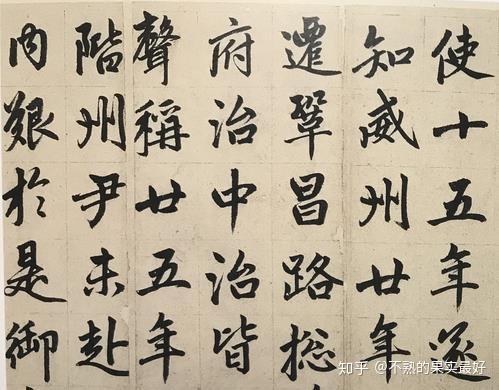 使十五年
知威州廿年
遷鞏昌路総
府治中治皆
聲稱廿五年
階州尹未赴
内艱於是御
知乎 @不熟的果实最好